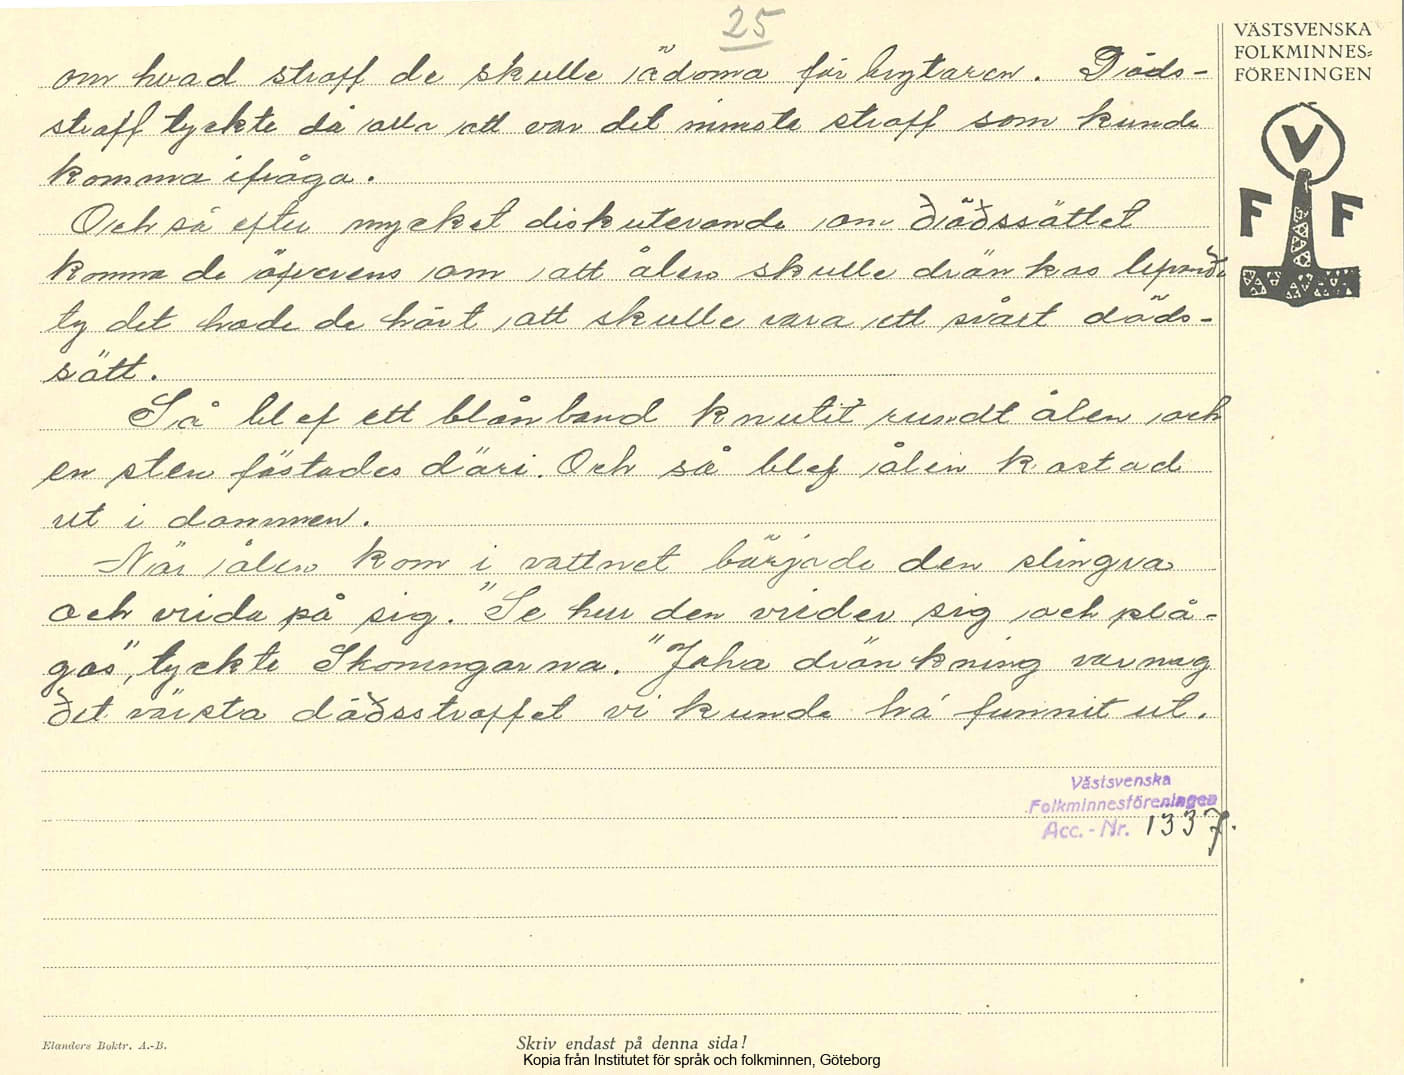 25
VÄSTSVENSKA
FOLKMINNES=
FÖRENINGEN
V
F F
om hvad straff de skulle ådöma förbrytaren. Döds-
straff tyckte då alla att var det minsta straff som kunde
komma ifråga.
Och så efter mycket diskuterande om dödssättet
komma de öfverens om att ålen skulle dränkas lefvande
ty det hade de hört att skulle vara ett svårt döds-
sätt.
Så blef ett blånband knutit rundt ålen och
en sten fästades däri. Och så blef ålen kastad
ut i dammen.
När ålen kom i vattnet började den slingra
och vrida på sig. "Se hur den vrider sig och plå-
gas", tyckte Skoningarna. "Jaha dränkning var nog
det värsta dödsstraffet vi kunde há funnit ut.
Västsvenska
Folkminnesföreningen
Acc.-Nr. 1337.
Elanders Boktr. A.-B.
Skriv endast på denna sida!
Kopia från Institutet för språk och folkminnen, Göteborg